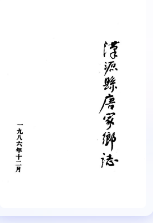 汉源縣唐家鄉志
一九八六年十二月